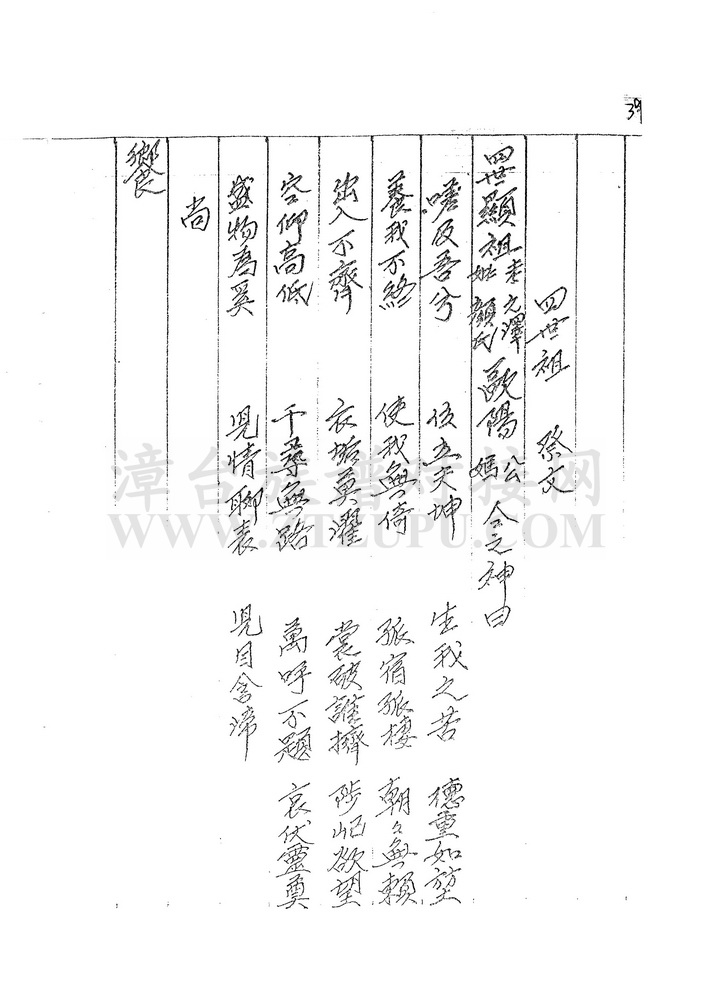 39
四世祖 祭文
四世顯祖考之澤妣顏氏歐陽公媽 仝之神曰
嗟及吾兮 伎立天坤 生我之苦 德重如
養我不終 使我無倚 孤宿孤棲 朝々無賴
出入不齊 衣垢莫濯 裳破誰擠 陟屺欲望
容仰高低 千尋無路 萬呼不題 哀伏靈奠
盛物為奚 児情聊表 児目含啼
尚
饗
漳台族谱对接网
WWW.ZTZUPU.COM